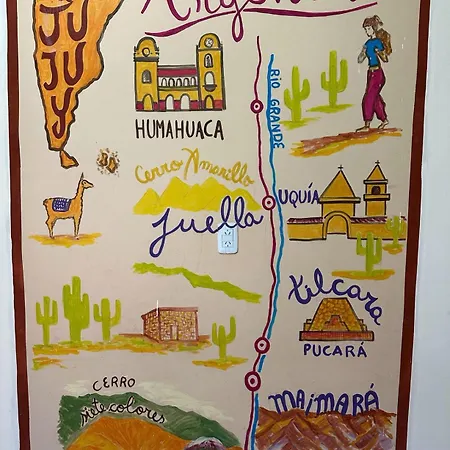 Argentina
JU
JU
Y
RIO GRANDE
HUMAHUACA
Cerro Amarillo
UQUÍA
Juella
tilcara
PUCARÁ
CERRO
siete colores
MAIMARÁ